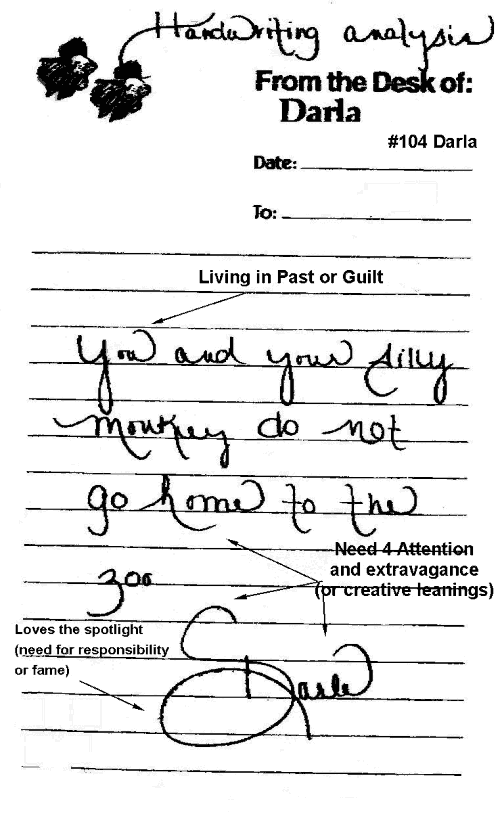 Handwriting analysis
From the Desk of:
Darla
#104 Darla
Date:
To:
Living in Past or Guilt
You and your silly
monkey do not
go home to the
Need 4 Attention
and extravagance
(or creative leanings)
zoo
Loves the spotlight
(need for responsibility
or fame)
Darla